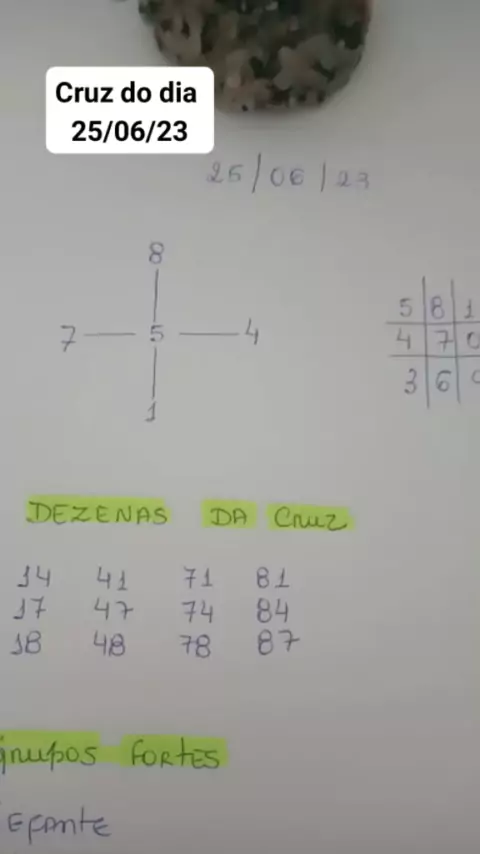 Cruz do dia
25/06/23
25/06/23
8
7 5 4
1
5 8 1
4 7 0
3 6
DEZENAS DA Cruz
14 41 71 81
17 47 74 84
18 48 78 87
grupos fortes
Efante